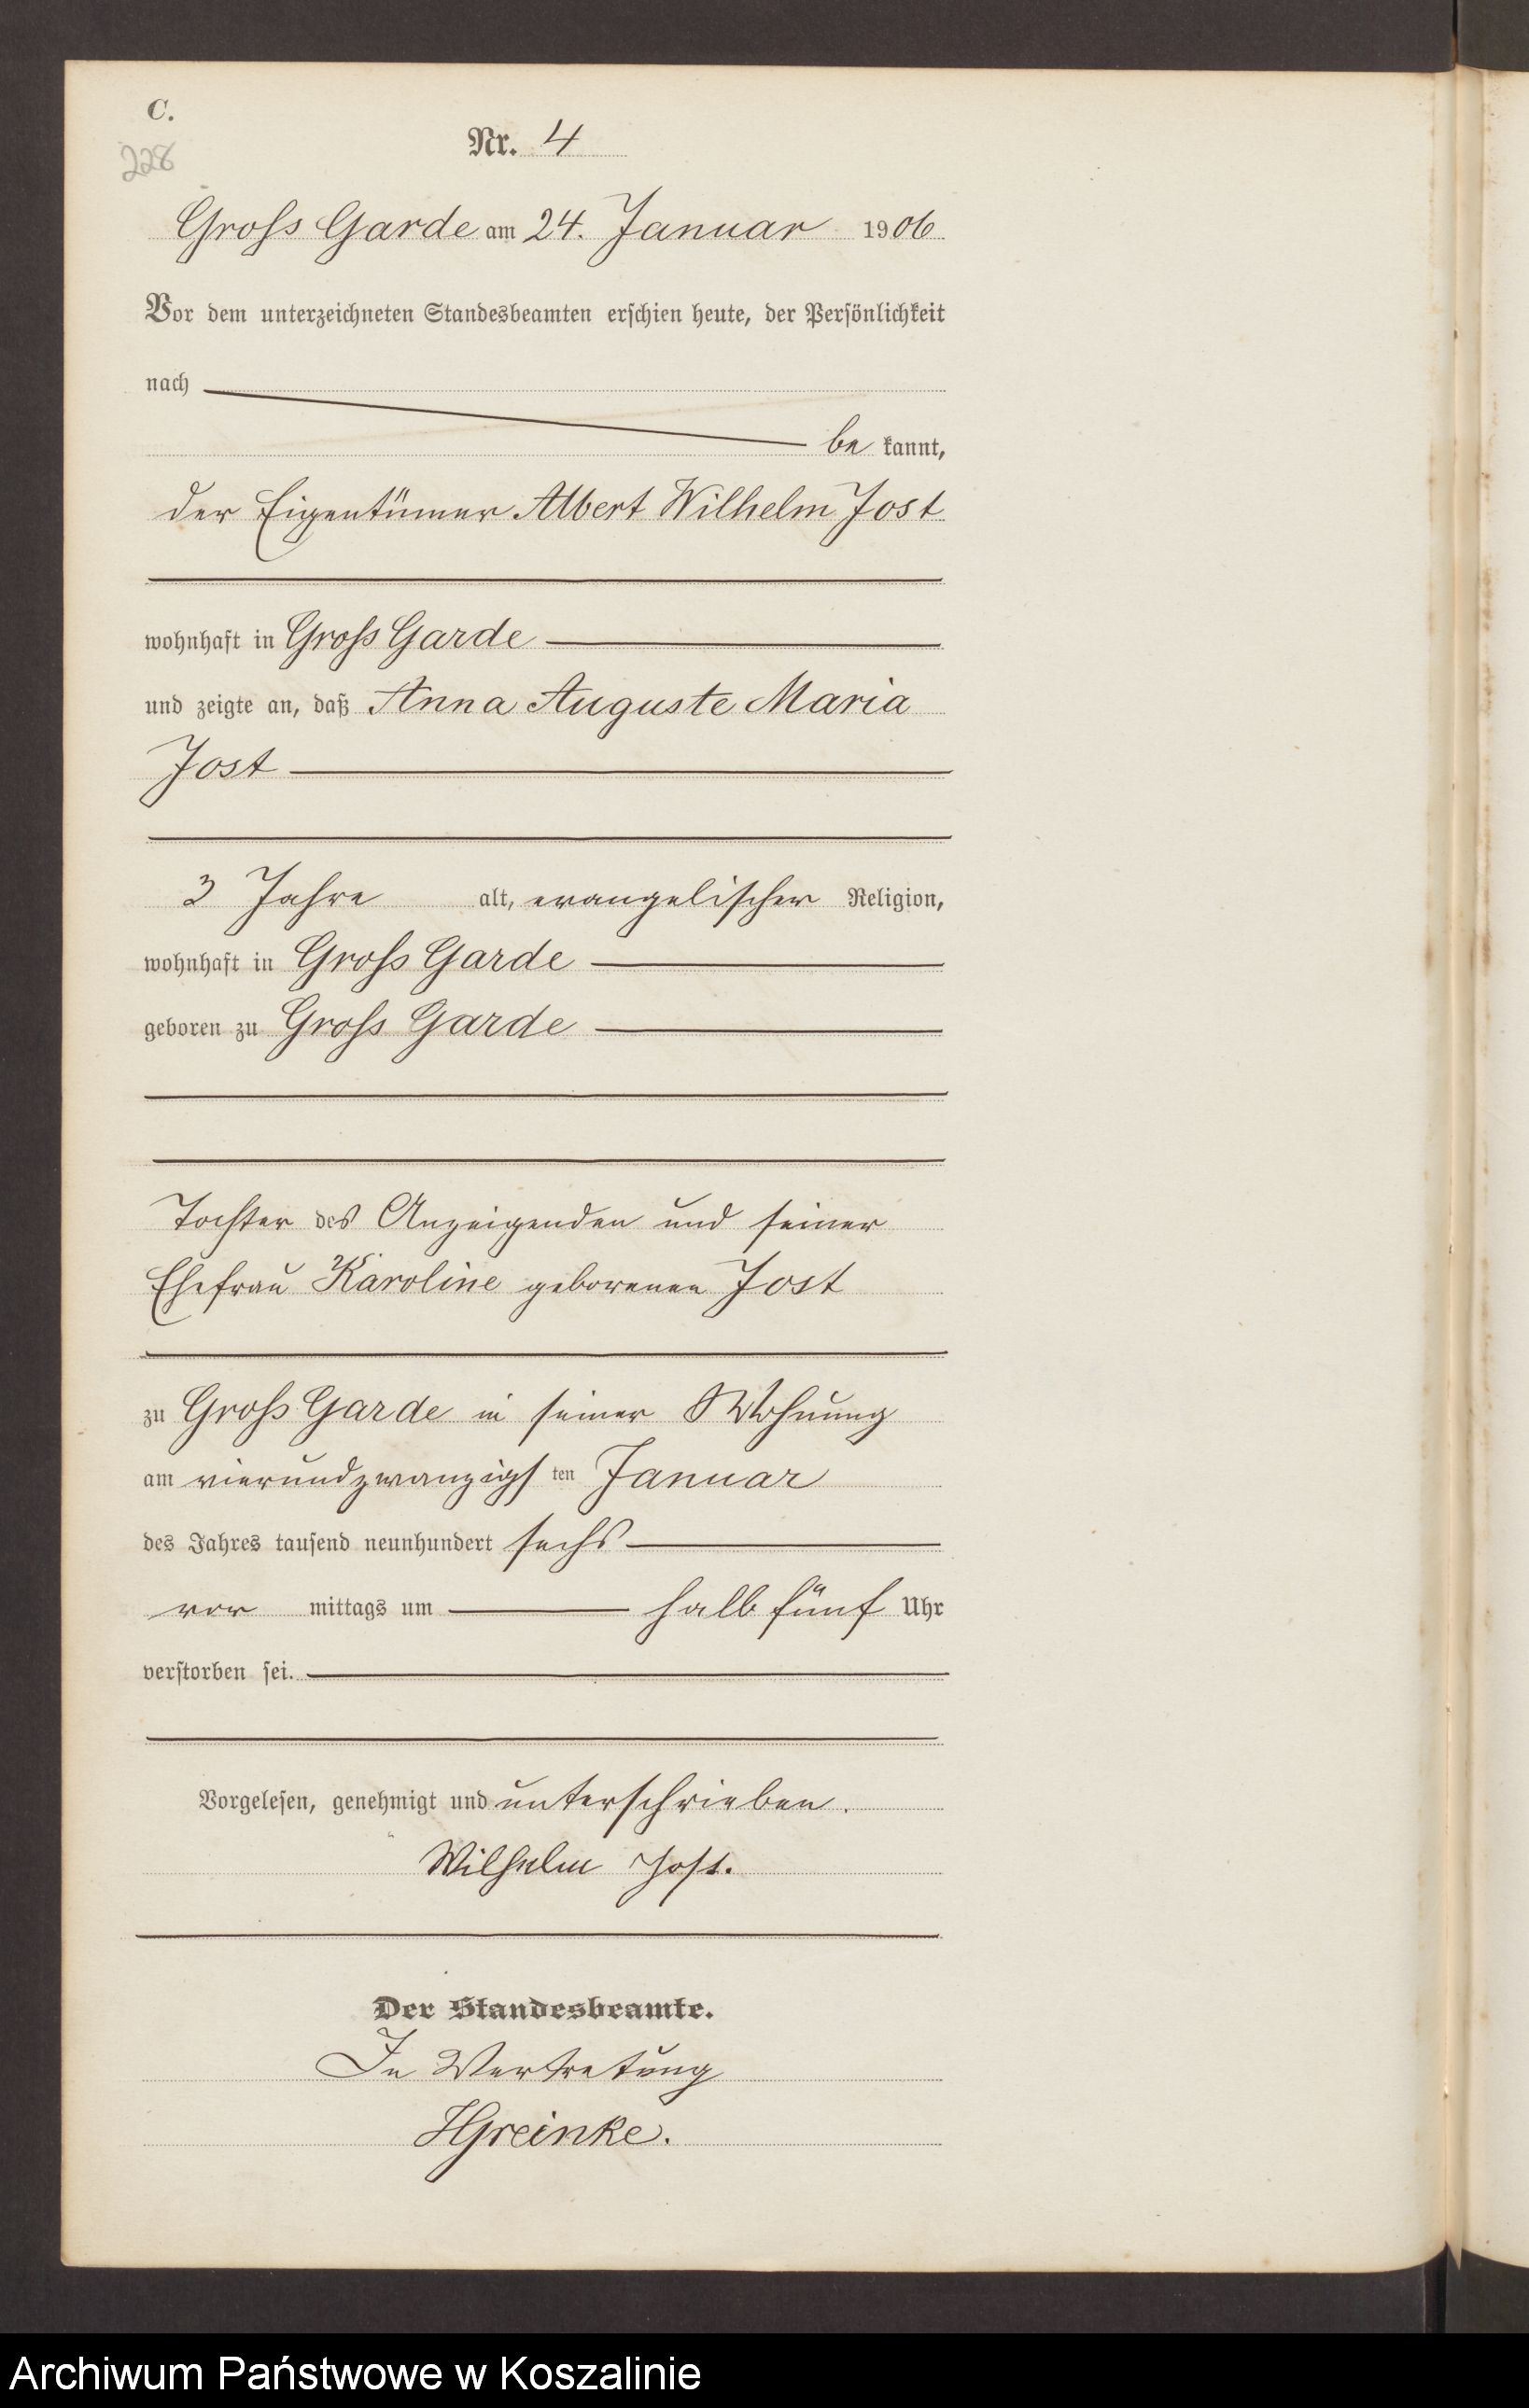 C.
228
Nr. 4
Gross Garde am 24. Januar 1906
Vor dem unterzeichneten Standesbeamten erschien heute, der Persönlichkeit
nach
be kannt,
der Eigentümer Albert Wilhelm Jost
wohnhaft in Gross Garde
und zeigte an, daß Anna Auguste Maria
Jost
3 Jahre alt, evangelischer Religion,
wohnhaft in Gross Garde
geboren zu Gross Garde
Tochter des Anzeigenden und seiner
Ehefrau Karoline geborenen Jost
zu Gross Garde in seiner Wohnung
am vierundzwanzigs ten Januar
des Jahres tausend neunhundert sechs
vor mittags um halb fünf Uhr
verstorben sei.
Vorgelesen, genehmigt und unterschrieben.
Wilhelm Jost.
Der Standesbeamte.
In Vertretung
HGreinke.
Archiwum Państwowe w Koszalinie